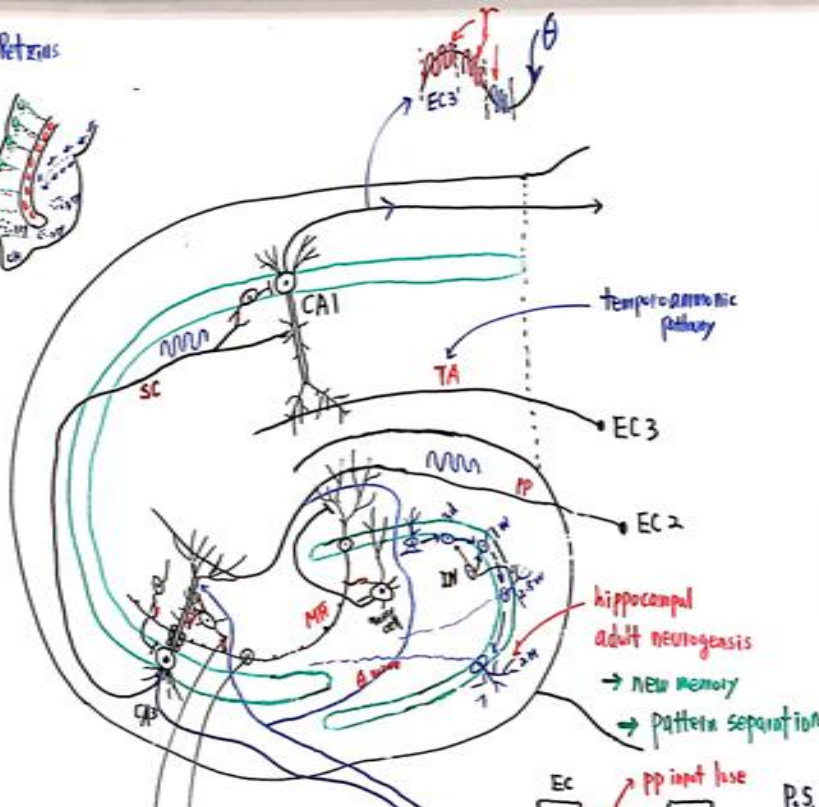 Retzius
γ
θ
EC3
CA1
temporoammonic
pathway
SC
TA
EC3
PP
EC2
1w
IN
2.5w
MF
hippocampal
adult neurogensis
→ new memory
→ pattern separation
CA3
EC
pp input lose
P.S